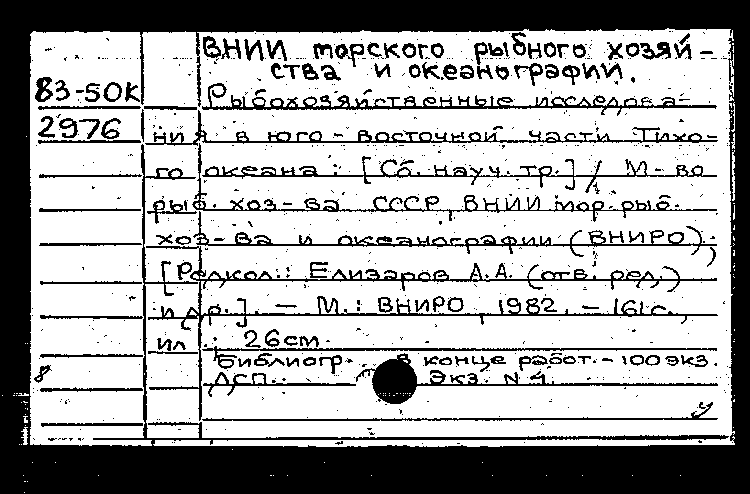 ВНИИ морского рыбного хозяй-
ства и океанографии.
83-50К Рыбохозяйственные исследова-
2976 ния в юго-восточной части Тихо-
го океана: [Сб. науч. тр.] / М-во
рыб. хоз-ва СССР, ВНИИ мор. рыб.
хоз-ва и океанографии (ВНИРО);
[Редкол.: Елизаров А.А. (отв. ред.)
и др.]. — М.: ВНИРО, 1982. — 161 с.,
ил.; 26 см.
Библиогр. в конце работ. - 100 экз.
8 ДСП. Экз. N 4.
У